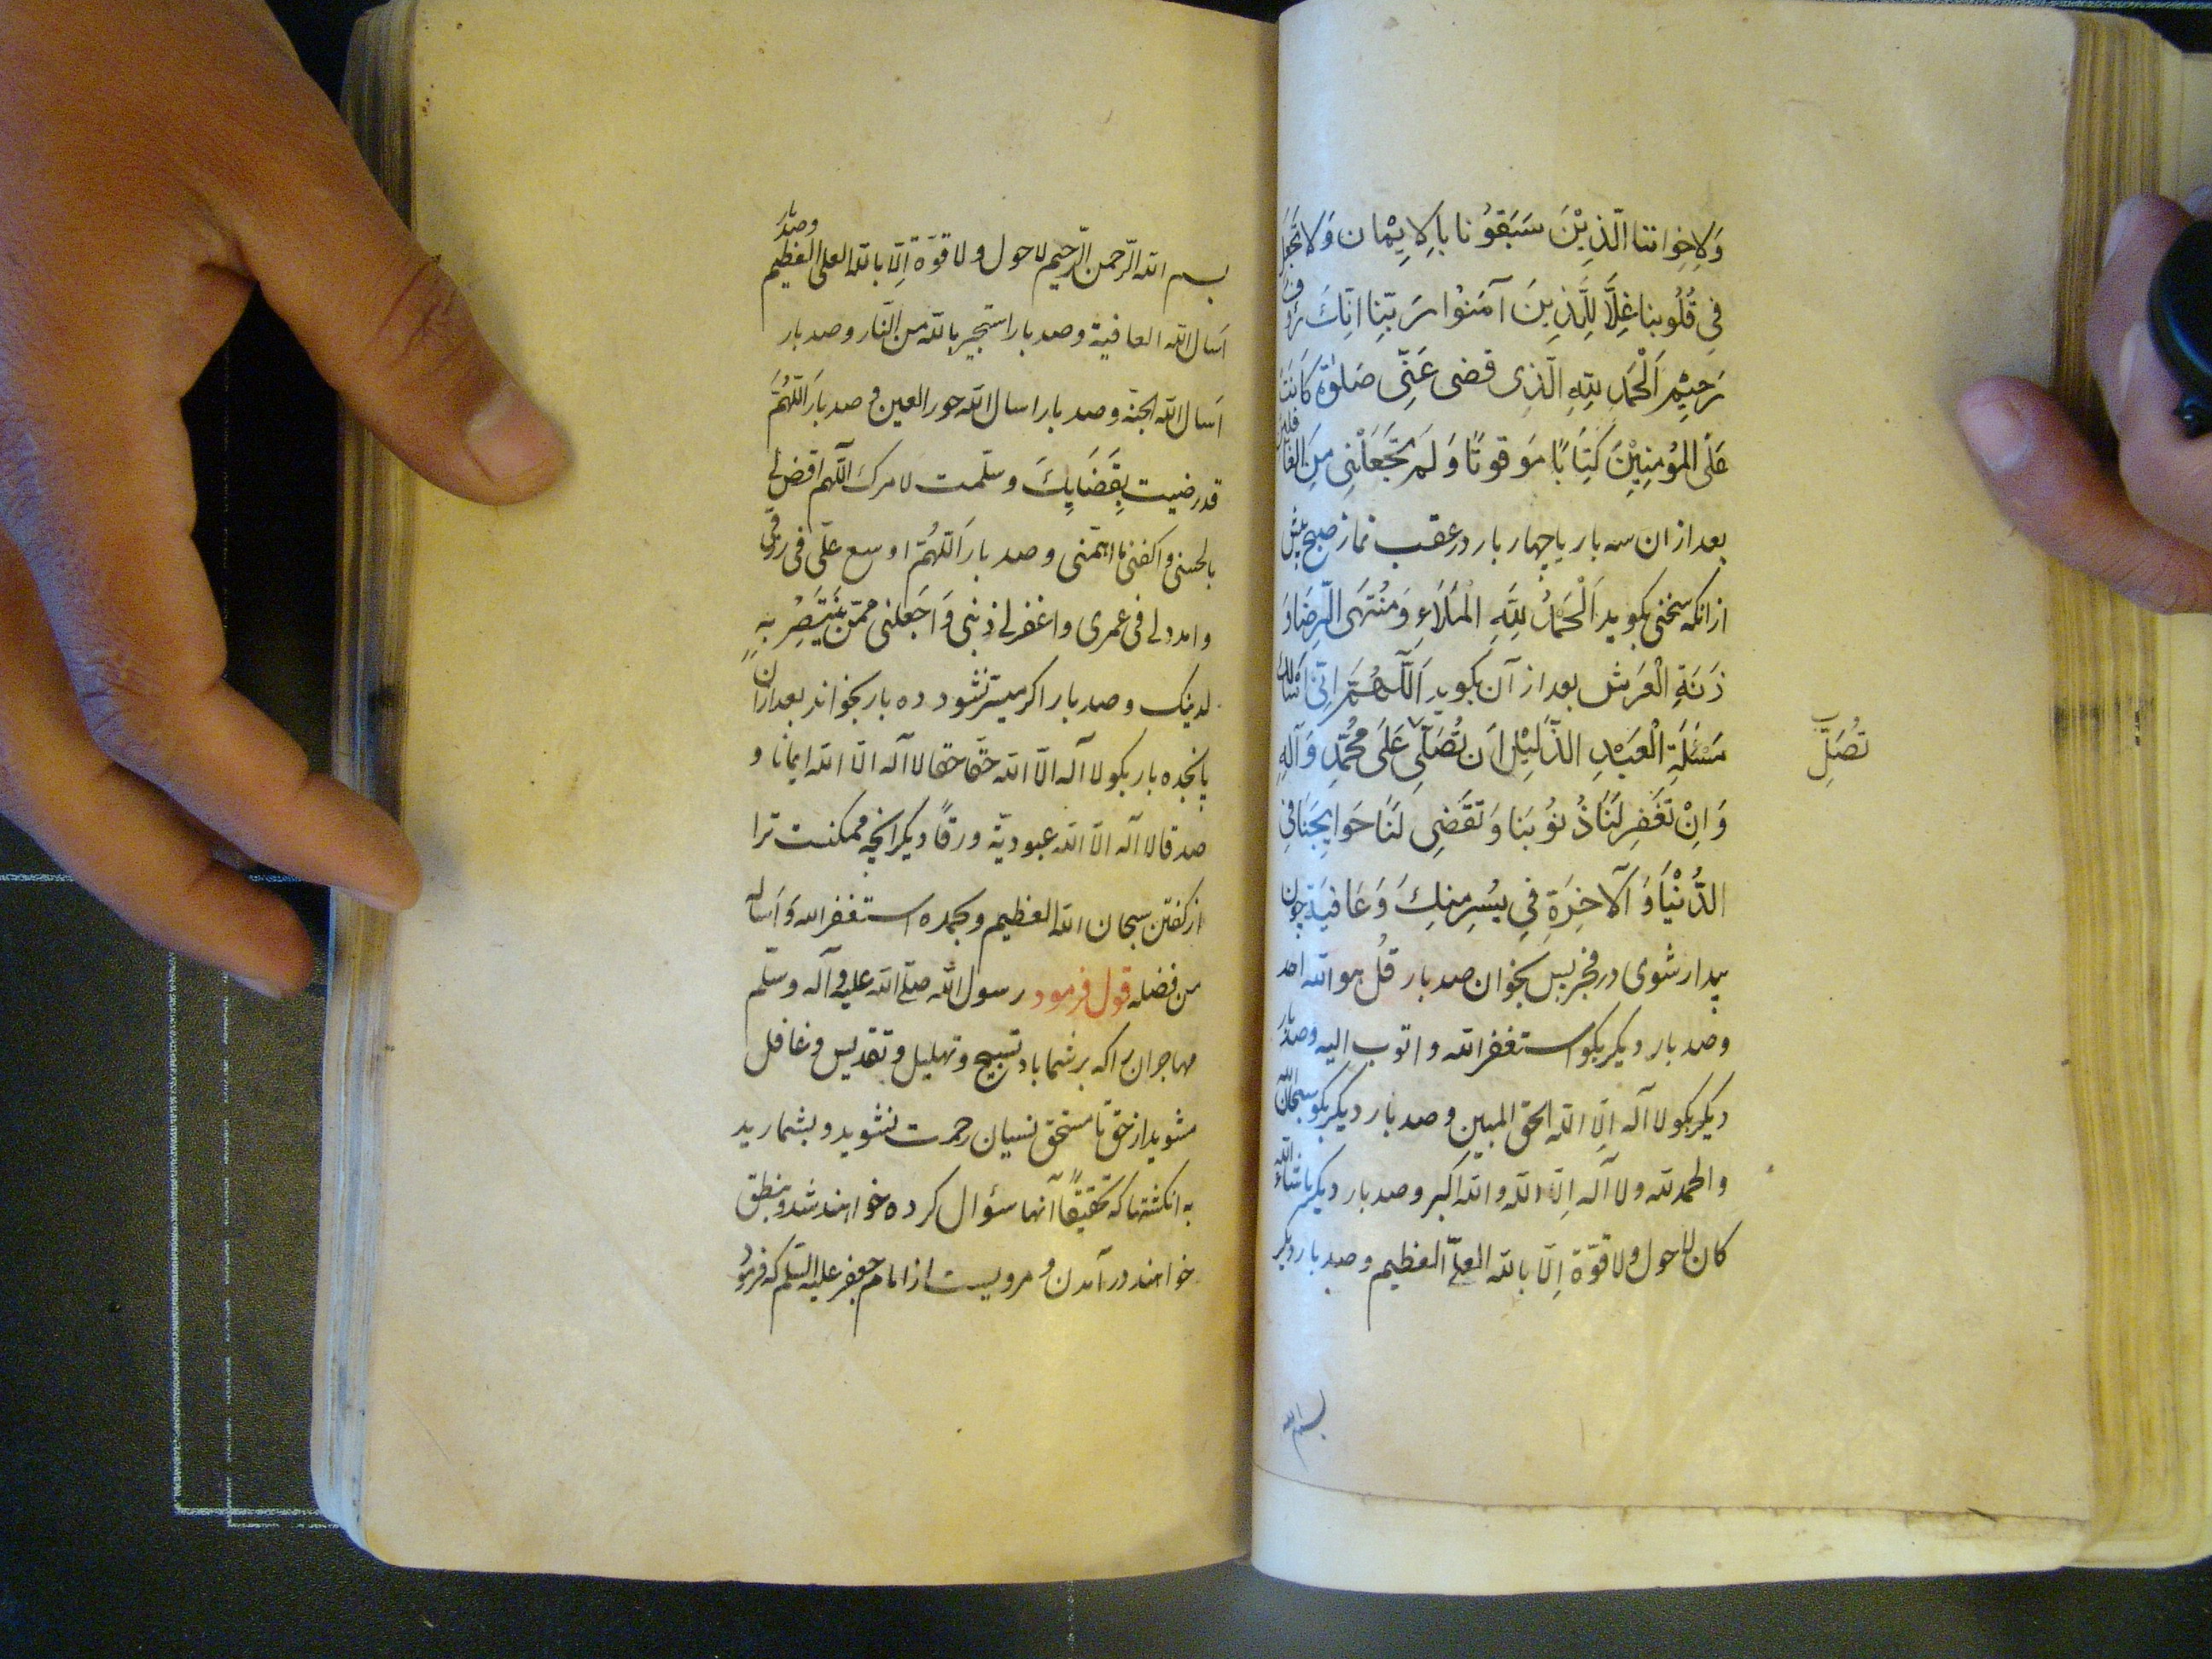 وَلِاِخِوانِنا الَّذِيْنَ سَبَقوُنا بِالاِيْمان وَلا تَجعَل
فِي قُلُوبنا غِلّاً لِلَّذِينَ آمَنوُا رَبَّنا انِّكَ رَؤف
رَحيِم اَلْحَمدِ لِلّهِ الَّذِى قضى عَنىِّ صَلوٰة كانَت
عَلَى المؤمِنِيْنَ كِتاَبًا مَوقوتًا وَلَم تَجَعَلْنِى مِنَ الغا فلين
بعد ازان سه بار يا چهار بار در عقب نماز صبح پيش
از انكه سخنى بكويد اَلْحَمدُ لِلَّهِ الْمَلَاءِ وَمُنتَهَى الرِّضَا وَ
زَنَةِ الْعَرَش بعد از آن بكويد اَللَّهُمَّ اِنّى اَسْالك
مَسْئلَةِ الْعَبْدِ الذَّليِلِ اَن تُصَلّى عَلَى مُحَمّدِ وَآلِهِ
تُصَلِّ ب
وَاِنْ تَغَفِر لَنَا ذُنوُبَنا وَتَقَضِى لَنَا حَوايِجَنا فِى
الدُّنْيَا وَ الآخِرَةِ فِي يُسْرٍ مِنكَ وَعَافيَة چون
بيدار شوى در فجر پس بخوان صد بار قُل هو الله احد
وصد بار ديكر بكو استغفر الله و اتوب اليه وصد بار
ديكر بكو لا آله اِلّا الله الحق المبين وصد بار ديكر بكو سبحان الله
والحمد لله ولا آله اِلّا الله والله اكبر وصد بار ديكر ما شاء الله
كان لا حول ولا قوّة اِلّا بالله العلىّ العظيم وصد بار ديكر
بسم الله
بسم الله الرّحمن الرّحيم لا حول ولا قوّة اِلّا بالله العلى العظيم وصد بار
اَسال الله العافية وصد بار استجير بالله من النّار وصد بار
اَسال الله الجنّة وصد بار اسال الله حور العين و صد بار اَللّهُمَّ
قد رضيت بِقَضَايِكَ وسلّمت لامركَ اَللّهم اقض لى
بالحسنى واكفنى ما اهمّنى وصد بار اَللّهُمّ اوسع علّى فى رزقى
وامدد لى فى عمرى واغفر لى ذنبى وَاجَعلنى ممّن يَنَتَصِرُ بهِ
لدينك وصد بار اكر ميسّر نشود ده بار بخواند بعد ازان
پانجده بار بكو لا آله الّا الله حَقّا حقا لا آله الّا الله ايمانا و
صدقا لا اله الّا الله عبوديّة ورقاً ديكر انچه ممكنست ترا
از كفتن سبحان الله العظيم وبحمده استغفر الله وَ اَساله
من فضله قول فرمود رسول الله صلّى الله عليه و آله وسلّم
مهاجران را كه بر شما باد تسبيح و تهليل و تقديس و غافل
مشويد از حق تا مستحق نسيان رحمت نشويد و بشماريد
به انكشتها كه تحقيقاً آنها سؤال كرده خواهند شد و بنطق
خواهند درآمدن و مرويست از امام جعفر عليه السّلم كه فرمود